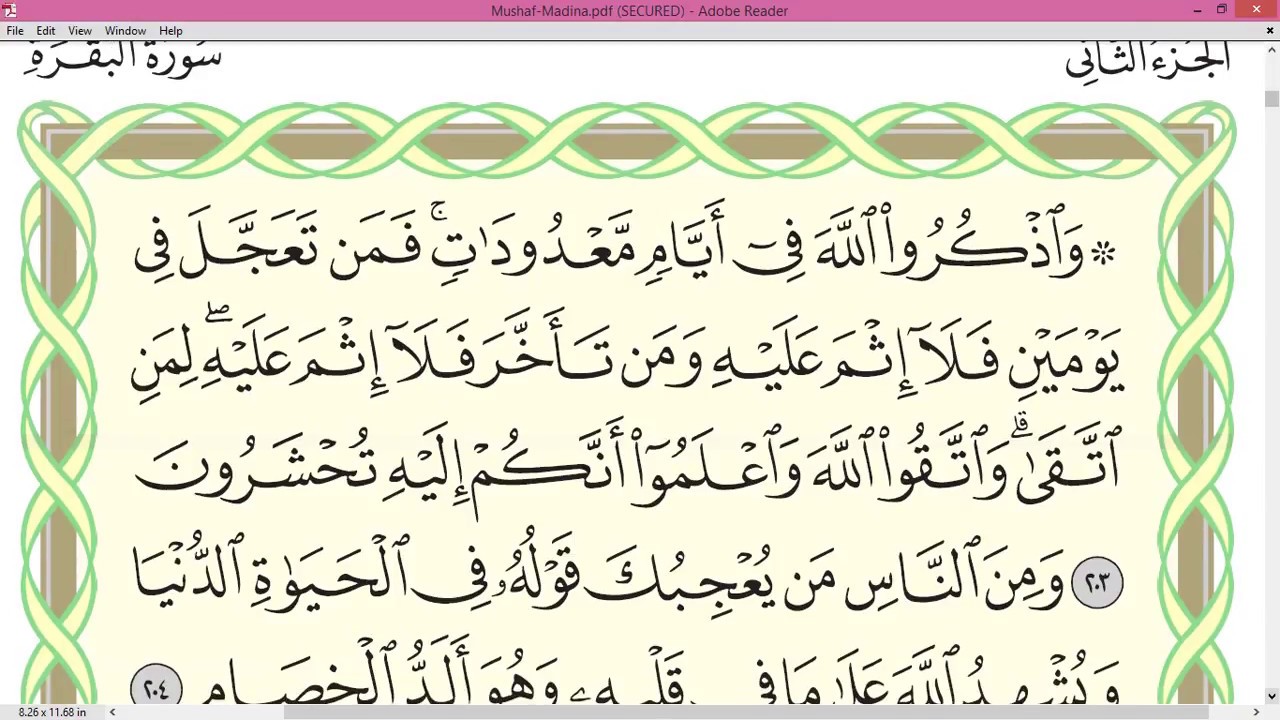 Mushaf-Madina.pdf (SECURED) - Adobe Reader
File Edit View Window Help
الجُزْءُ الثَّانِى سُورَةُ البَقَرَةِ
* وَٱذْكُرُوا۟ ٱللَّهَ فِىٓ أَيَّامٍ مَّعْدُودَٰتٍ ۚ فَمَن تَعَجَّلَ فِى
يَوْمَيْنِ فَلَآ إِثْمَ عَلَيْهِ وَمَن تَأَخَّرَ فَلَآ إِثْمَ عَلَيْهِ ۖ لِمَنِ
ٱتَّقَىٰ ۗ وَٱتَّقُوا۟ ٱللَّهَ وَٱعْلَمُوٓا۟ أَنَّكُمْ إِلَيْهِ تُحْشَرُونَ
٢٠٣ وَمِنَ ٱلنَّاسِ مَن يُعْجِبُكَ قَوْلُهُۥ فِى ٱلْحَيَوٰةِ ٱلدُّنْيَا
وَيُشْهِدُ ٱللَّهَ عَلَىٰ مَا فِى قَلْبِهِۦ وَهُوَ أَلَدُّ ٱلْخِصَامِ ٢٠٤
8.26 x 11.68 in